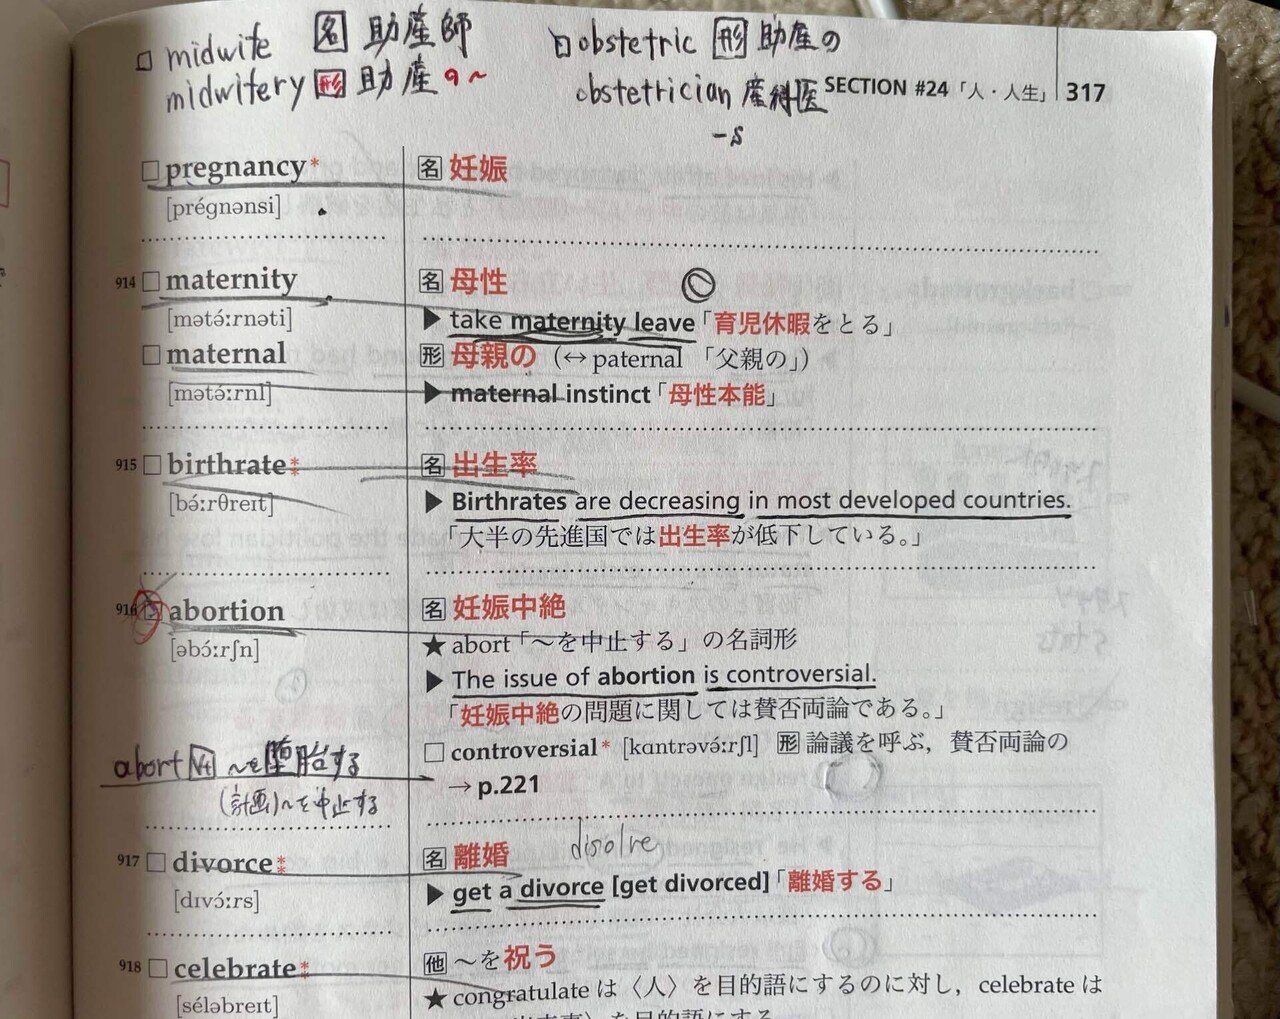 □ midwife 名 助産師
midwifery 形 助産の〜
□ obstetric 形 助産の
obstetrician 産科医
-s
SECTION #24「人・人生」 317
□ pregnancy* 名 妊娠
[prégnənsi]
914 □ maternity 名 母性
[mətə́ːrnəti] ▶ take maternity leave「育児休暇をとる」
□ maternal 形 母親の（↔ paternal 「父親の」）
[mətə́ːrnl] ▶ maternal instinct「母性本能」
915 □ birthrate⁑ 名 出生率
[bə́ːrθreɪt] ▶ Birthrates are decreasing in most developed countries.
「大半の先進国では出生率が低下している。」
916 □ abortion 名 妊娠中絶
[əbɔ́ːrʃn] ★ abort「〜を中止する」の名詞形
▶ The issue of abortion is controversial.
「妊娠中絶の問題に関しては賛否両論である。」
□ controversial* [kɑntrəvə́ːrʃl] 形 論議を呼ぶ，賛否両論の
→ p.221
abort Vt 〜を堕胎する
(計画)〜を中止する
917 □ divorce⁑ 名 離婚
disolve
[dɪvɔ́ːrs] ▶ get a divorce [get divorced]「離婚する」
918 □ celebrate⁑ 他 〜を祝う
[séləbreɪt] ★ congratulate は〈人〉を目的語にするのに対し，celebrate は
を目的語にする